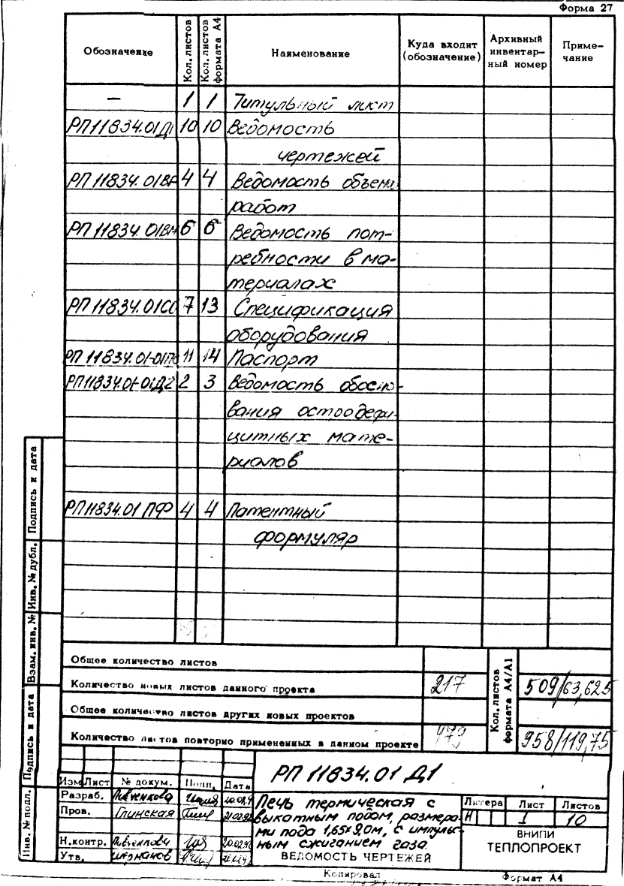 Форма 27
Обозначение Кол. листов Кол. листов формата А4 Наименование Куда входит (обозначение) Архивный инвентарный номер Примечание
— 1 1 Титульный лист
РП 11834.01Д1 10 10 Ведомость
чертежей
РП 11834.01ВР 4 4 Ведомость объем
работ
РП 11834.01ВМ 6 6 Ведомость пот-
ребности в ма-
териалах
РП 11834.01СО 7 13 Спецификация
оборудования
РП 11834.01-01ПС 11 14 Паспорт
РП 11834.01-01Д2 2 3 Ведомость обосно-
вания остродефи-
цитных мате-
риалов
РП 11834.01 ПФ 4 4 Патентный
формуляр
Общее количество листов
Количество новых листов данного проекта 217
Кол. листов формата А4/А1
509/63,625
Общее количество листов других новых проектов
Количество листов повторно примененных в данном проекте
958/119,75
Подпись и дата
Инв. № дубл.
Взам. инв. №
Подпись и дата
Инв. № подл.
РП 11834.01 Д1
Изм Лист № докум. Подп. Дата
Разраб.
Пров. Глинская
Н.контр.
Утв.
Печь термическая с
выкатным подом, размера-
ми пода 1,65х9,0м, с импуль-
ным сжиганием газа.
ВЕДОМОСТЬ ЧЕРТЕЖЕЙ
Литера Лист Листов
И 1 10
ВНИПИ
ТЕПЛОПРОЕКТ
Копировал Формат А4